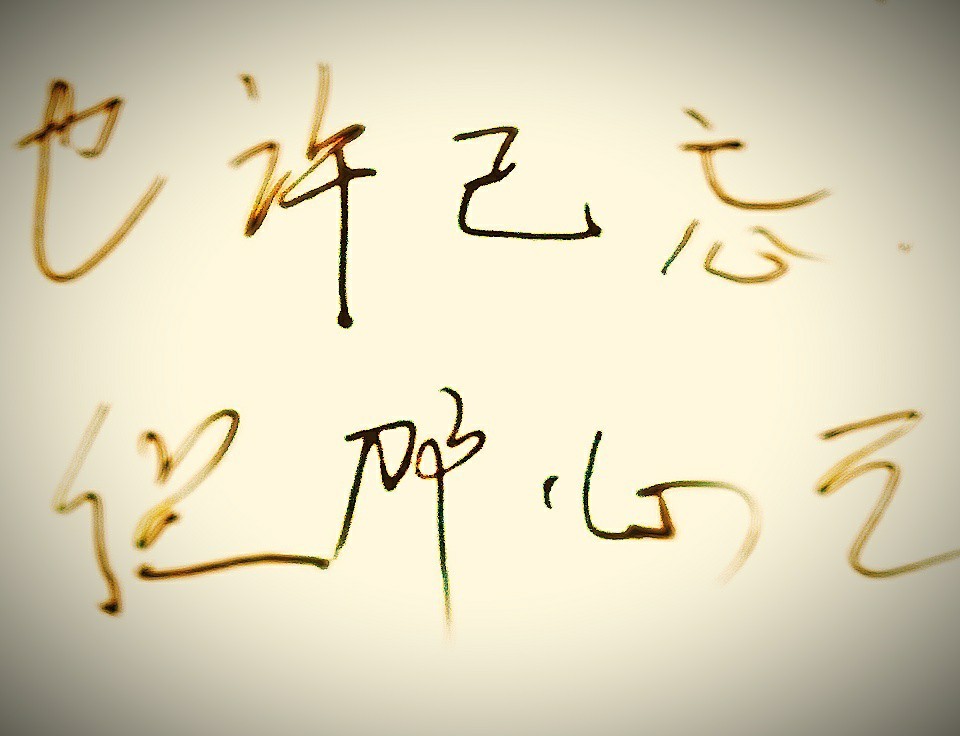 也许已忘
但那心之